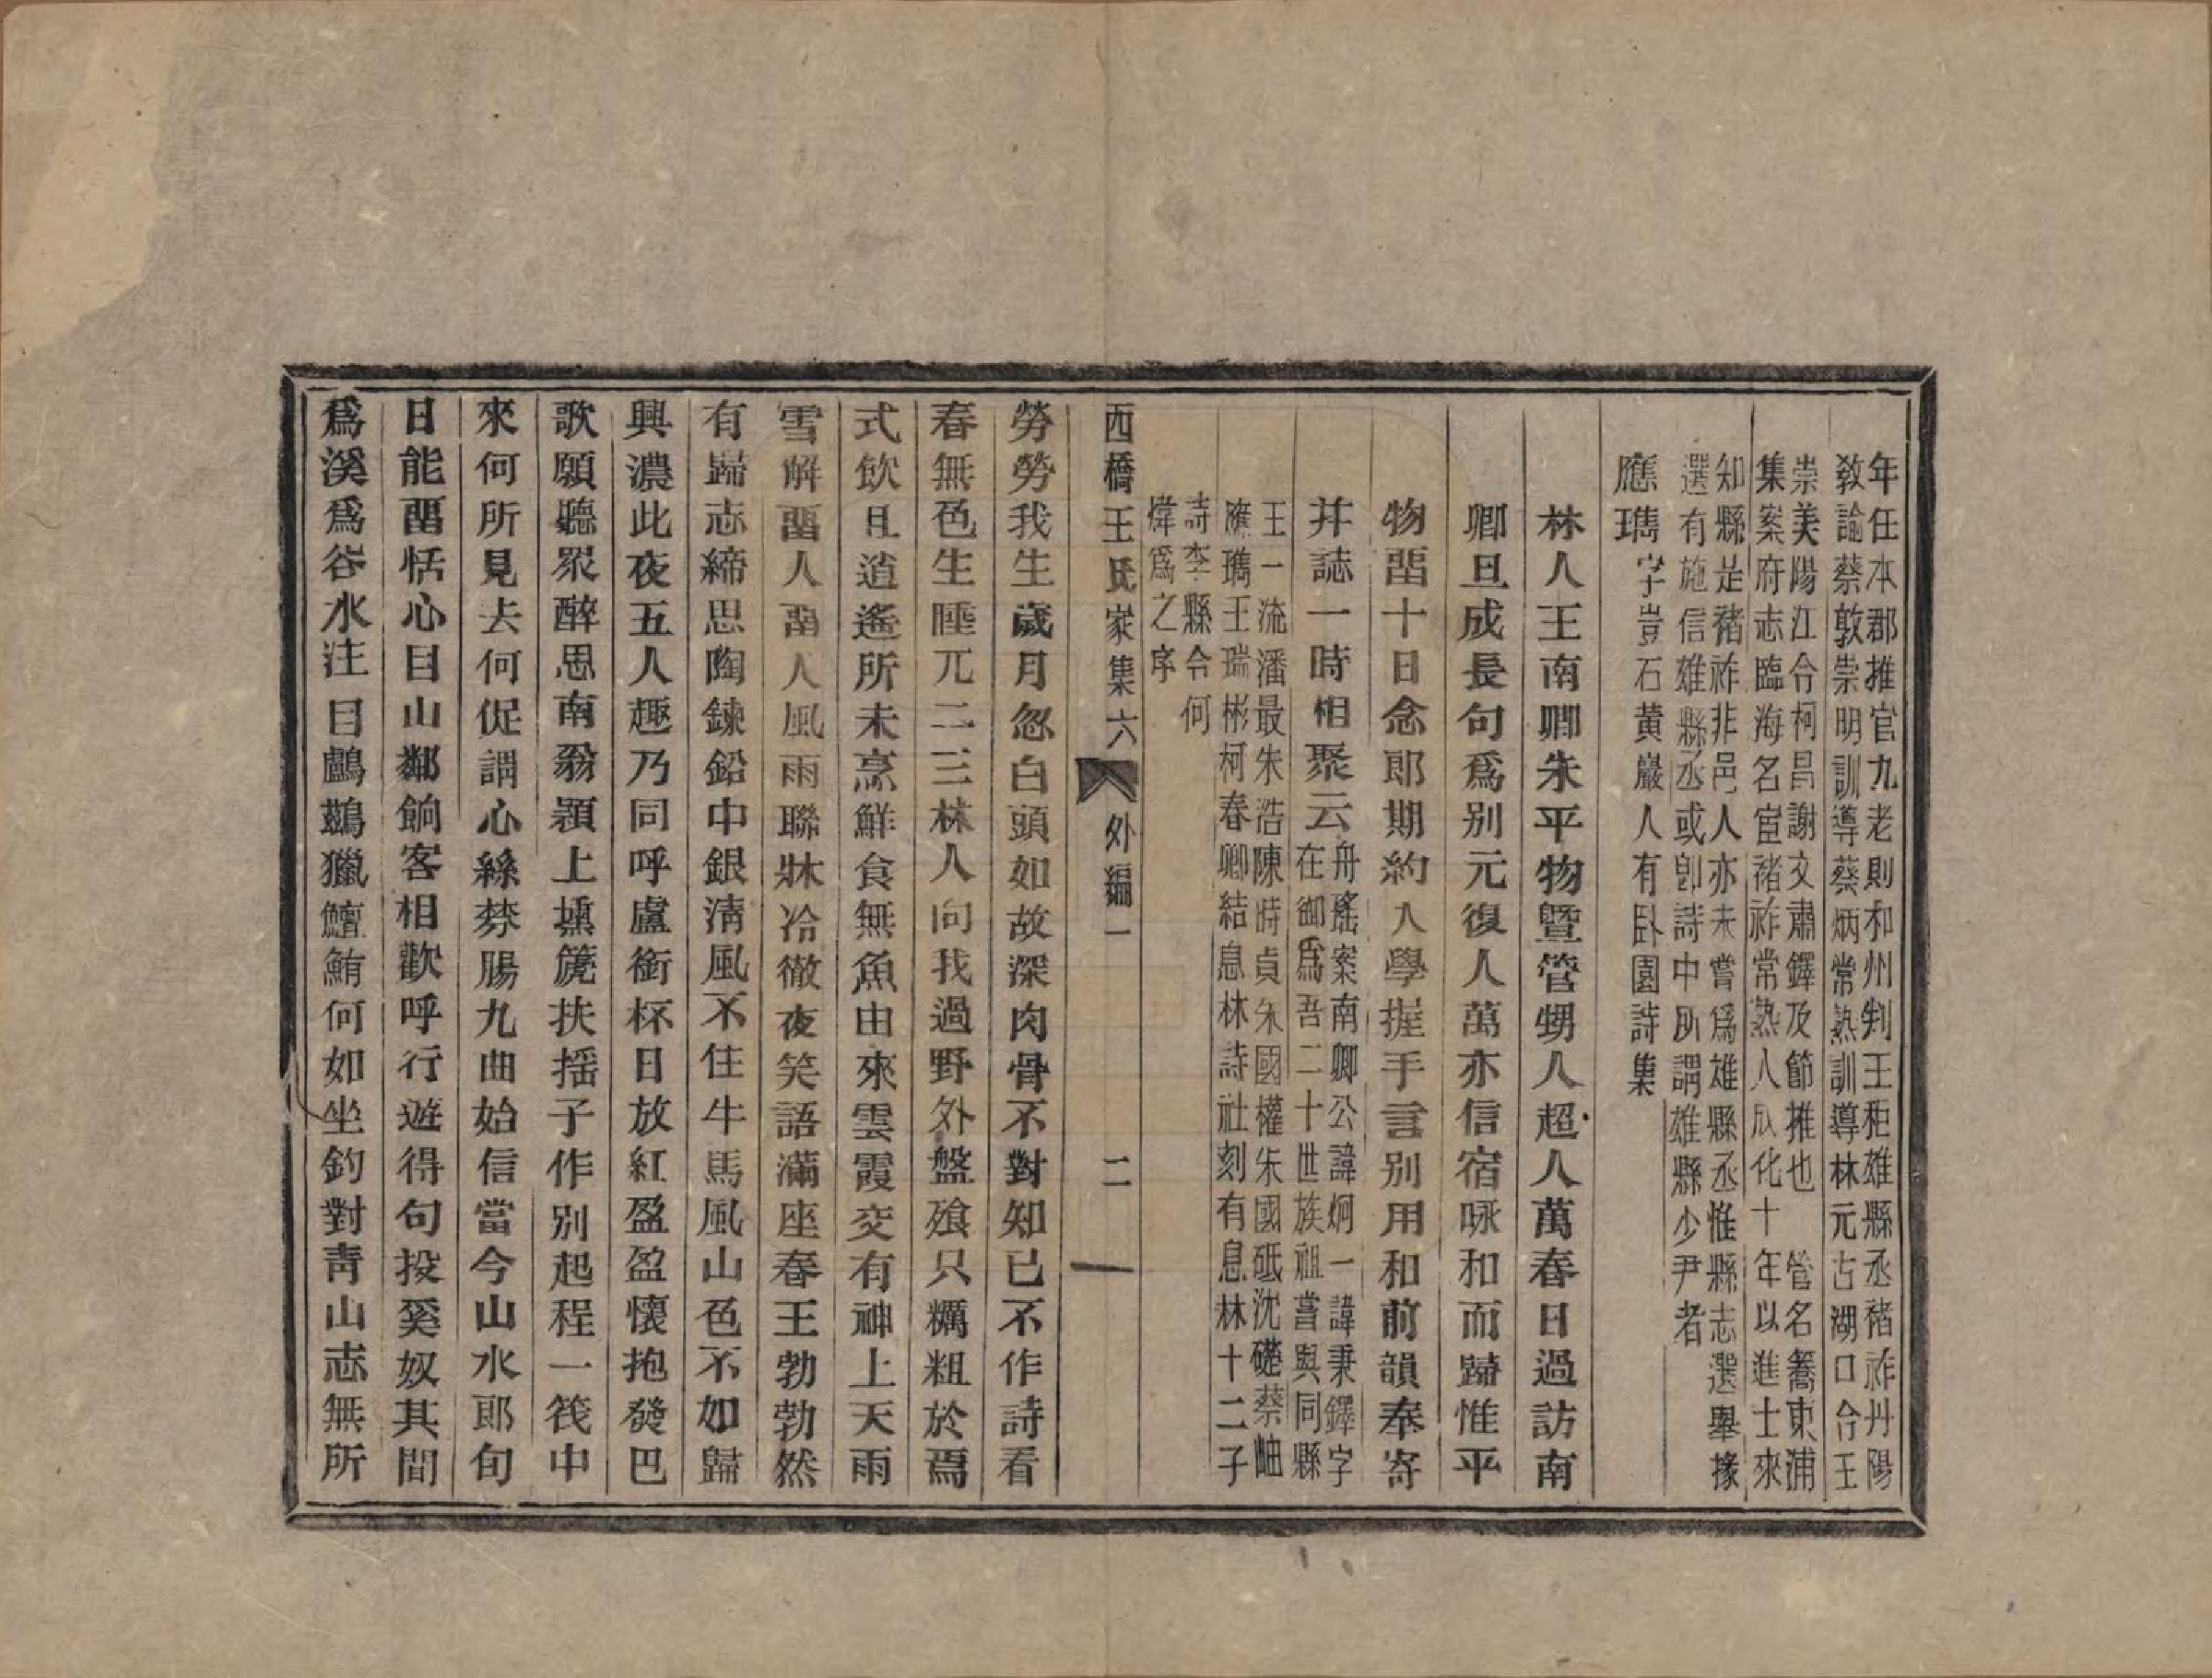 年任本郡推官九老則和州判王秬雄縣丞豬祚丹陽
敎諭蔡敦崇明訓導蔡炳常熟訓導林元古湖口令王
崇美陽江令柯昌謝文肅鐸及節推也　管名籌東浦
集案府志臨海名宦褚祚常熟人成化十年以進士來
知縣是褚祚非邑人亦未嘗爲雄縣丞惟縣志選舉掾
選有施信雄縣丞或卽詩中所謂雄縣少尹者
應㻽字豈石黃巖人有臥園詩集
林人王南卿朱平物曁管甥人超人萬春日過訪南
卿旦成長句爲別元復人萬亦信宿咏和而歸惟平
物畱十日念郎期約入學握手言別用和前韻奉寄
并誌一時相聚云
舟瑤案南卿公諱炯一諱秉鐸字
在卿爲吾二十世族祖嘗與同縣
王一流潘最朱浩陳時貞朱國權朱國砥沈礎蔡岫
應㻽王瑞彬柯春卿結息林詩社刻有息林十二子
詩李縣令何
煒爲之序
西橋王氏家集六　外編一　二
勞勞我生歲月忽白頭如故深肉骨不對知已不作詩看
春無色生睡兀二三林人向我過野外盤飱只糲粗於焉
式飲且逍遙所未烹鮮食無魚由來雲霞交有神上天雨
雪解畱人畱人風雨聯牀冷徹夜笑語滿座春王勃勃然
有歸志締思陶鍊鉛中銀淸風不住牛馬風山色不如歸
興濃此夜五人趣乃同呼盧銜杯日放紅盈盈懷抱發巴
歌願聽眾醉思南翁穎上壎篪扶搖子作別起程一筏中
來何所見去何促謂心絲棼腸九曲始信當今山水郎旬
日能畱恬心目山鄰餉客相歡呼行遊得句投奚奴其間
爲溪爲谷水注目鸕鷀獵鱣鮪何如坐釣對靑山志無所